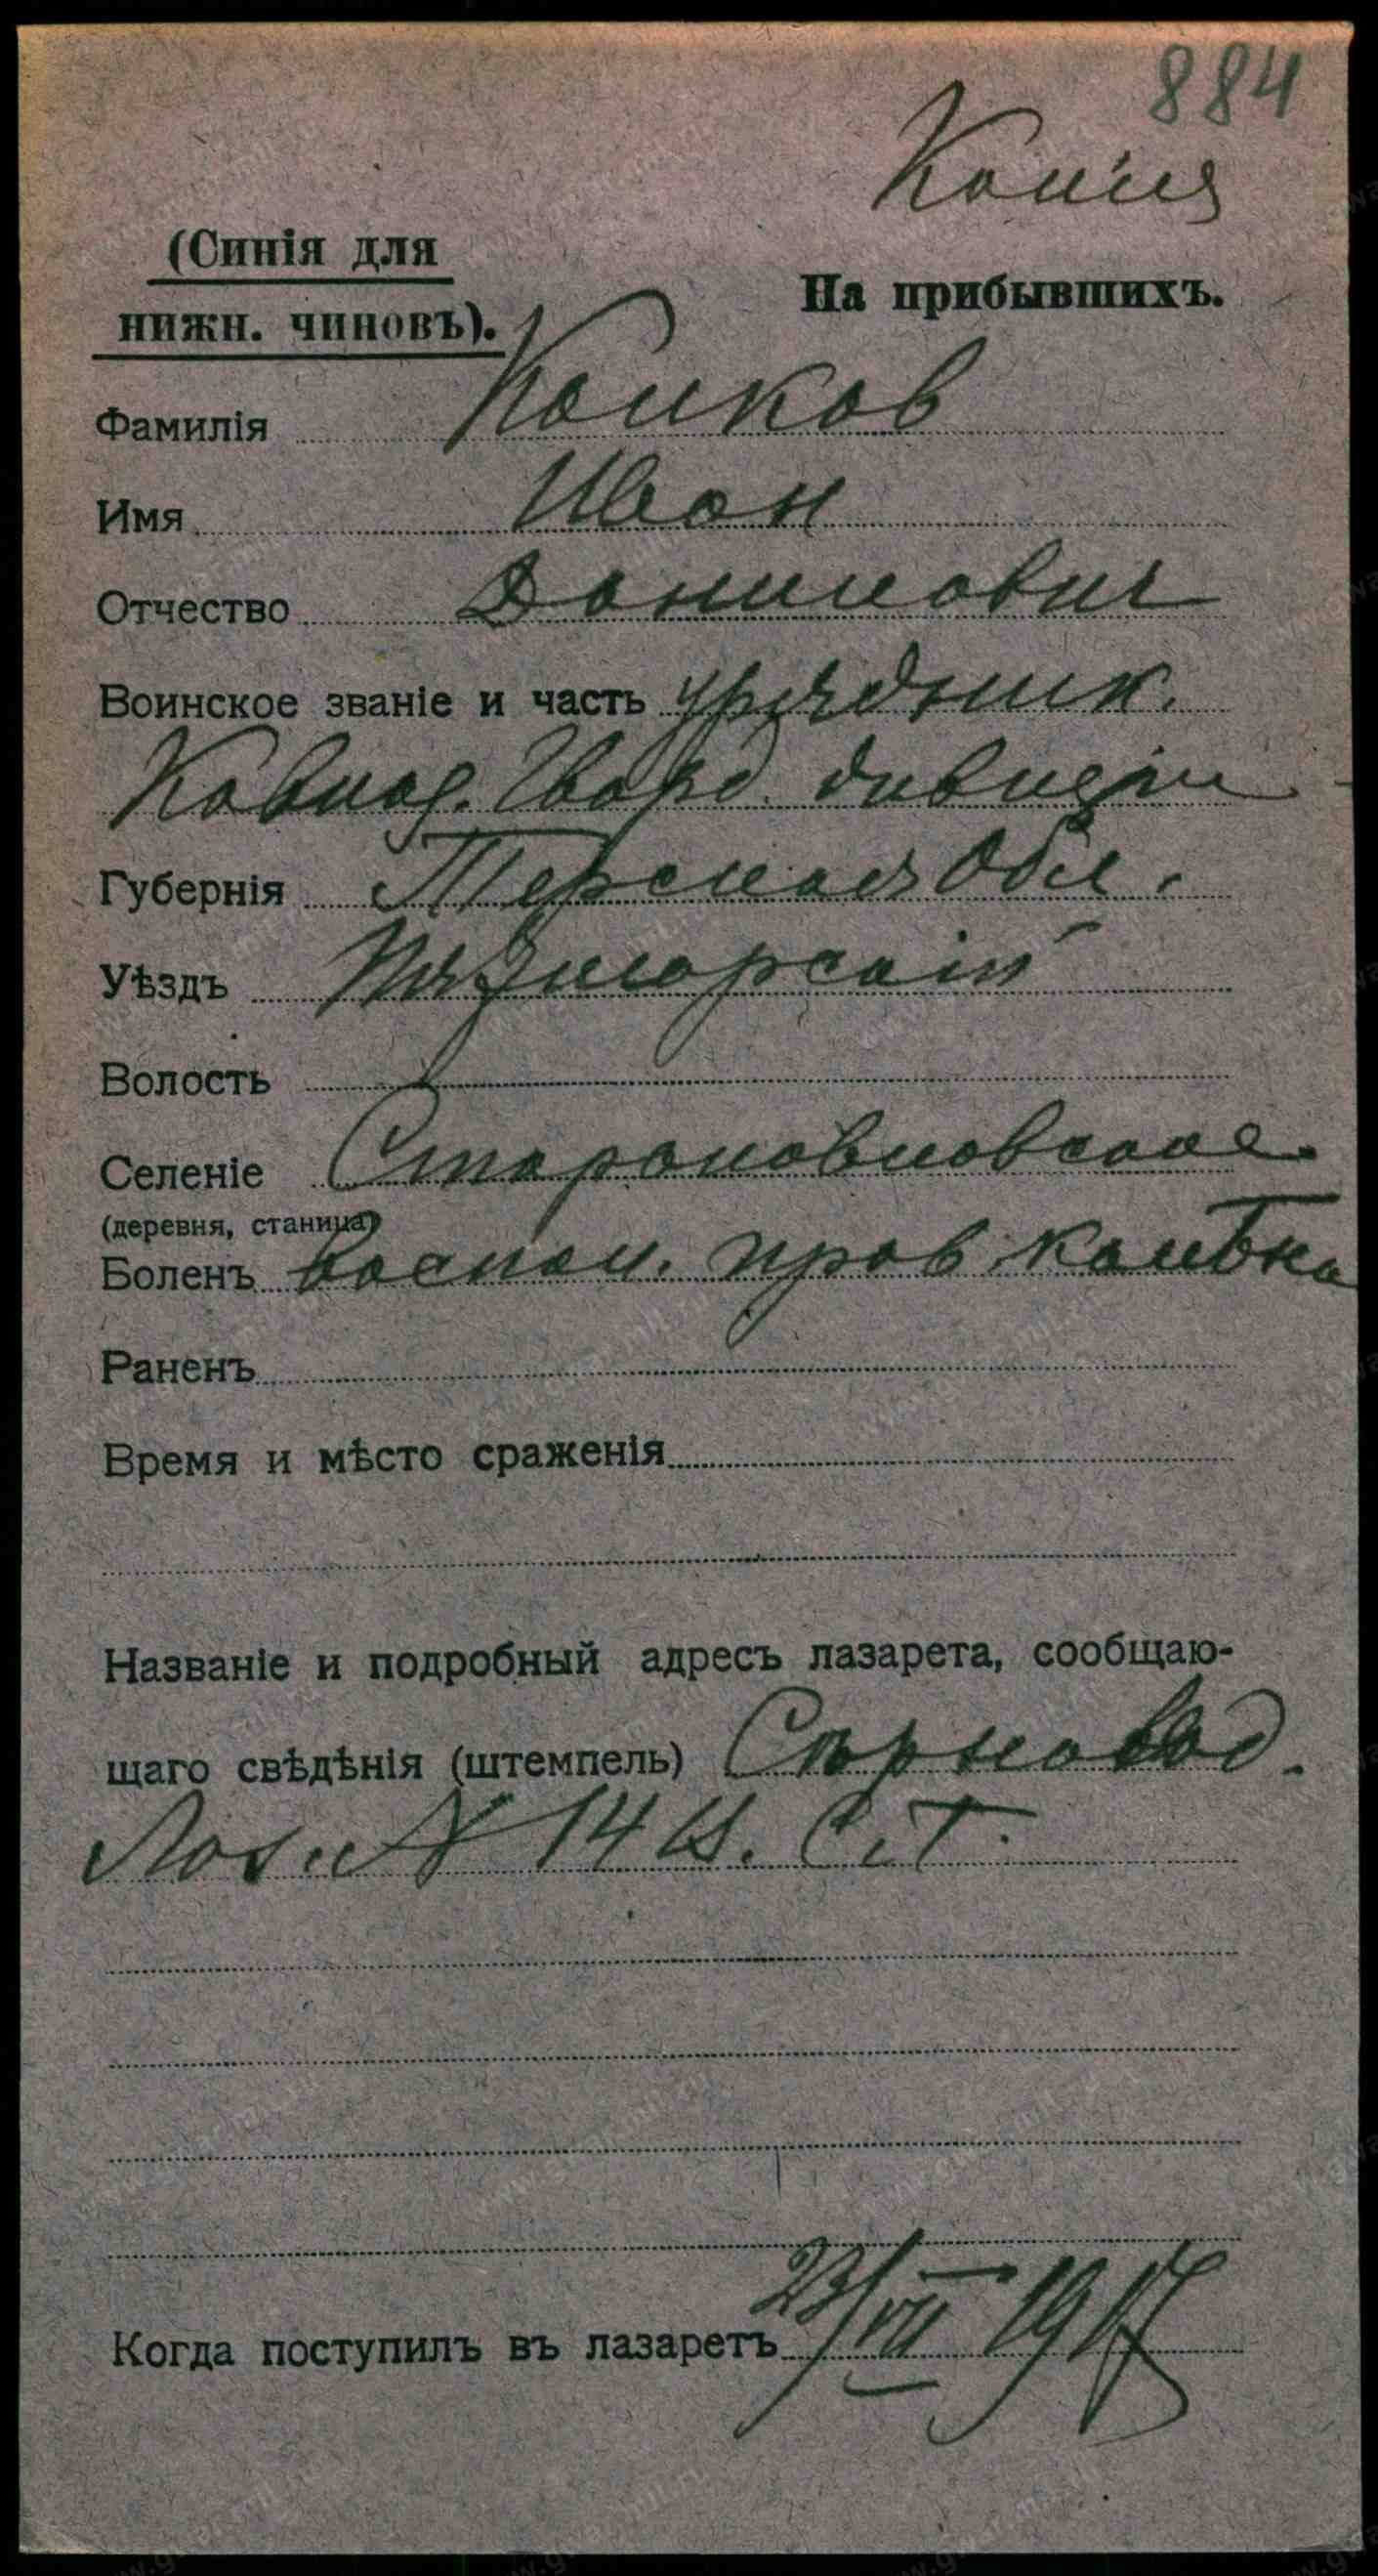 884
Копия
(Синія для
На прибывшихъ.
нижн. чиновъ).
Фамилія
Имя Иван
Отчество Данилович
Воинское званіе и часть урядник.
Гвард. дивизии
Губернія Терская Обл.
Уѣздъ Пятигорский
Волость
Селеніе
(деревня, станица)
Боленъ воспал. прав. колѣна
Раненъ
Время и мѣсто сраженія
Названіе и подробный адресъ лазарета, сообщаю-
щаго свѣдѣнія (штемпель)
Лаз. № 14
Когда поступилъ въ лазаретъ 23/VII